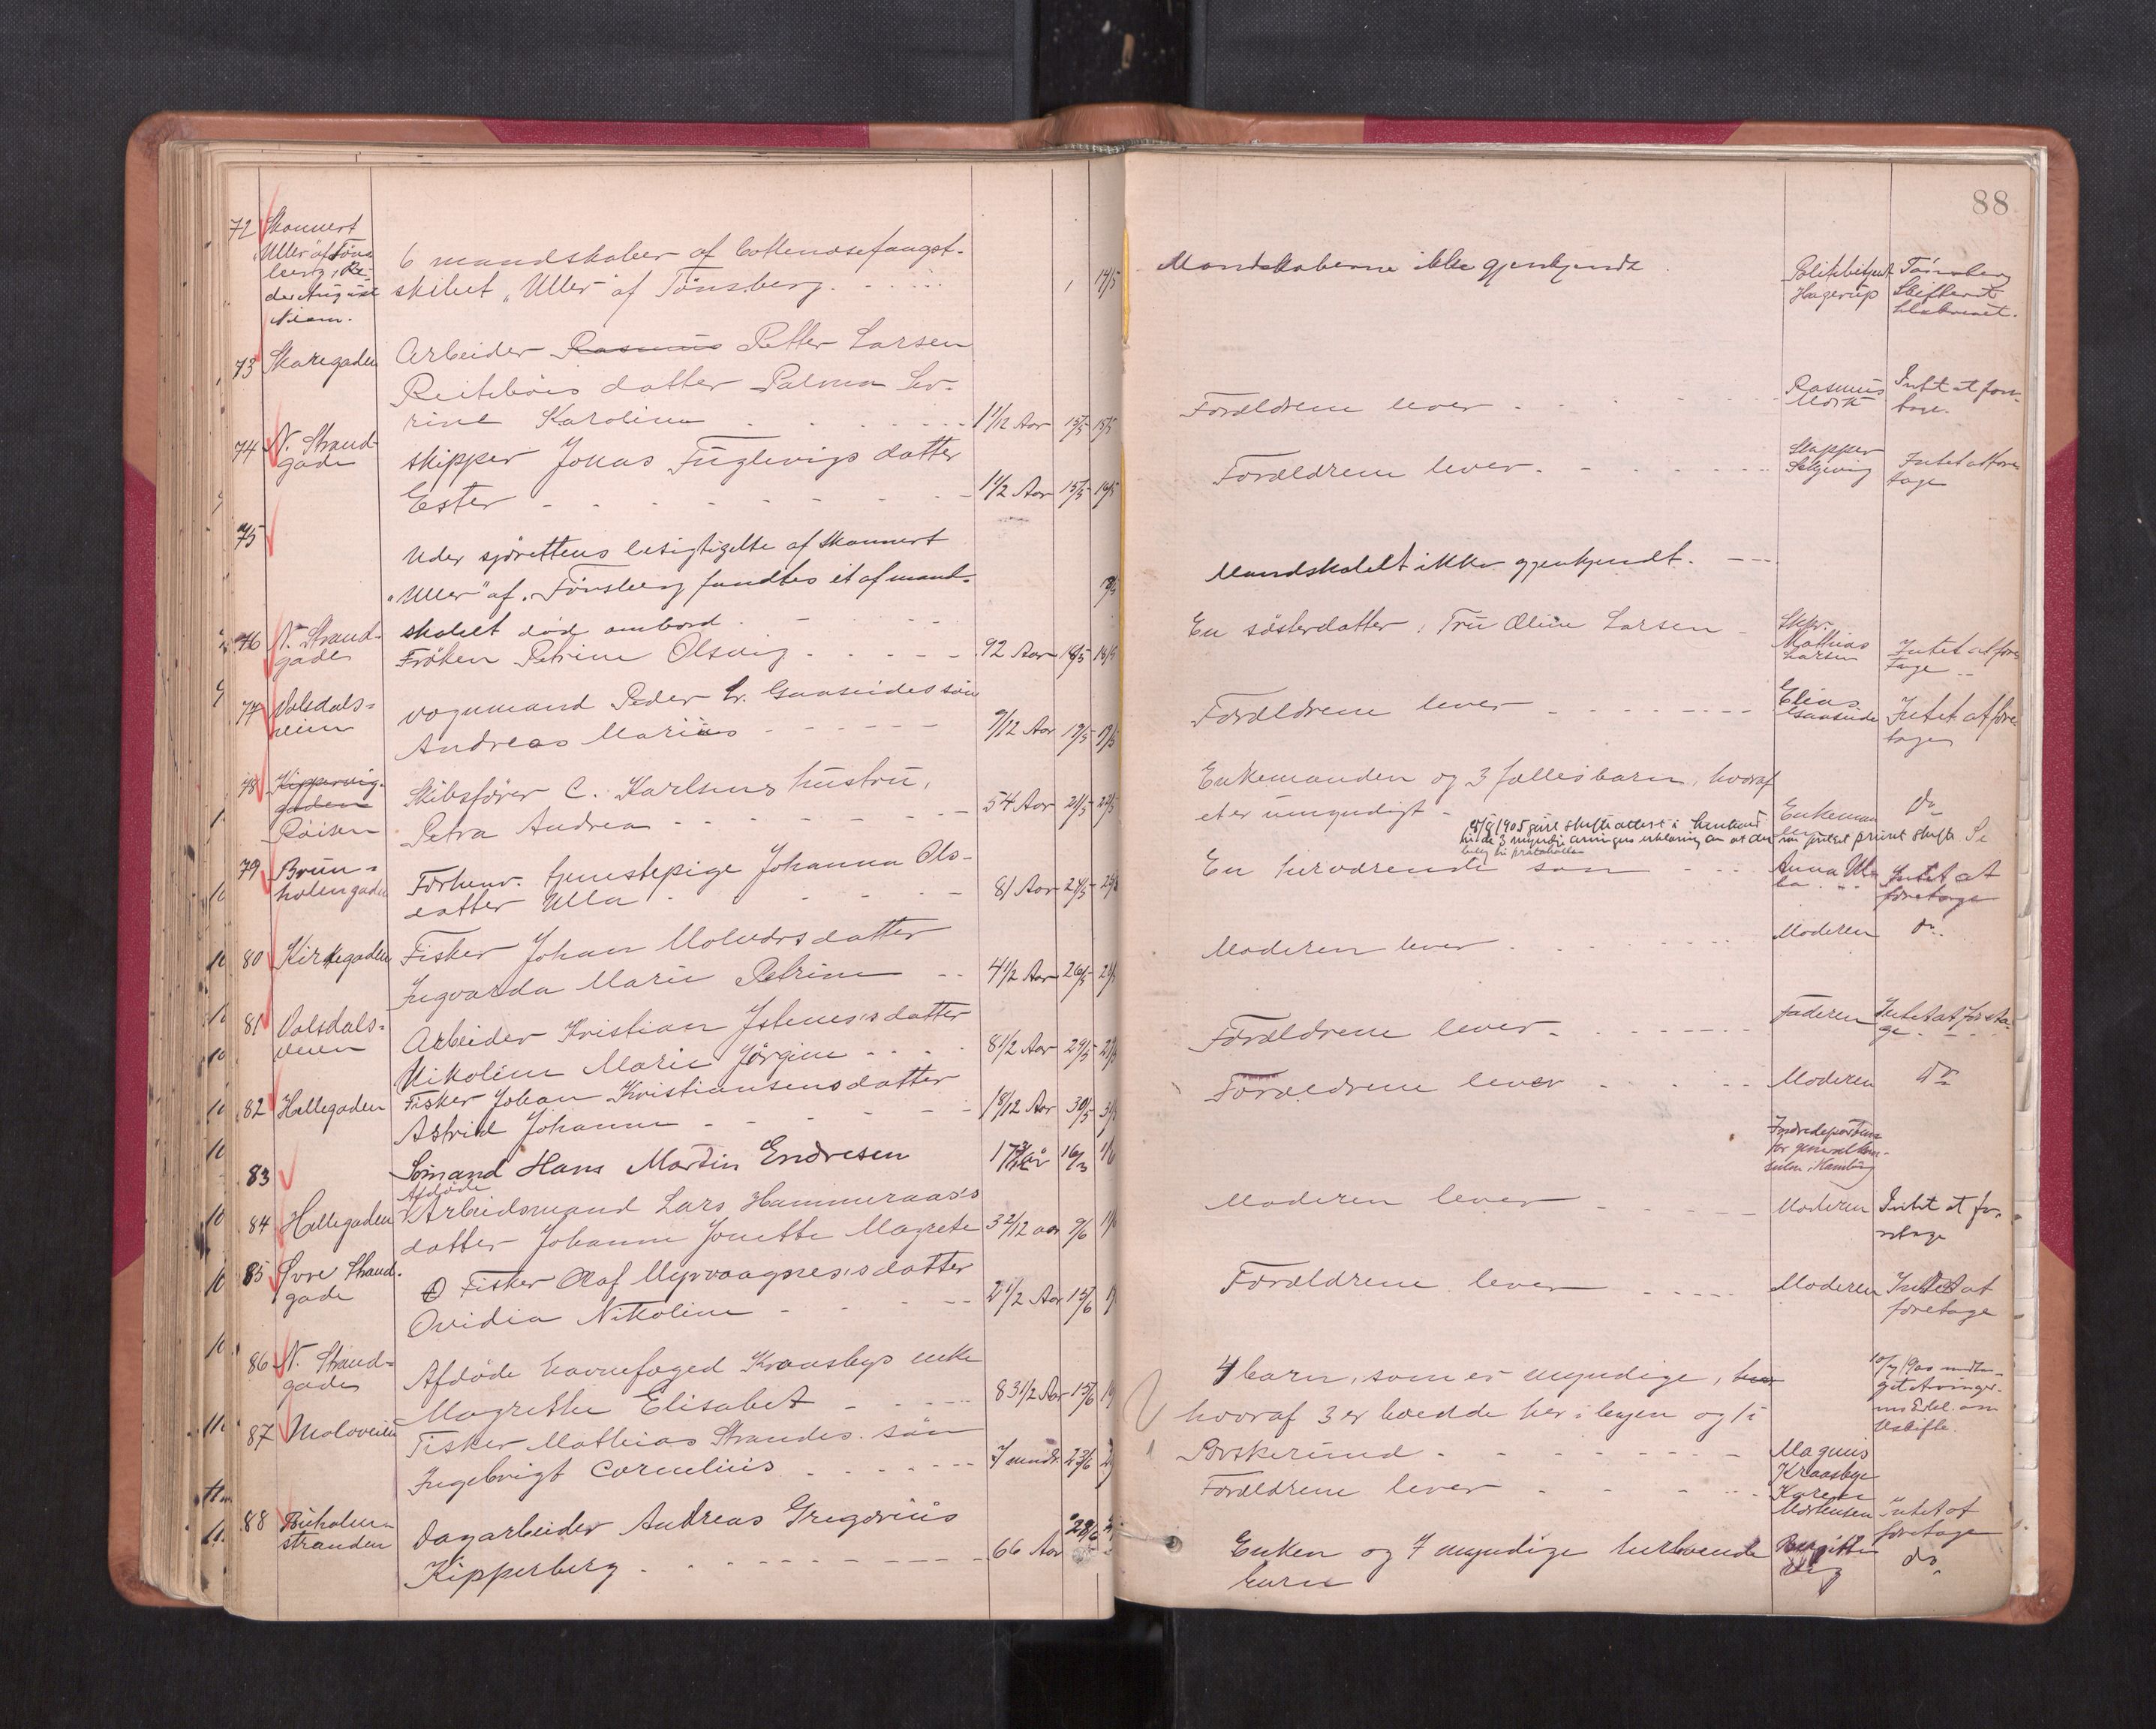 88
72 Skonnert
"Uller" af Töns
berg, Re-
der August
6 mandskaber af bottenosefangst-
skibet "Uller" af Tönsberg. 14/5
Mandskaberne ikke gjenkjendt.
Politibetjent
Hagerup
Tönsberg
Skifteret
73 Skaregaden
Arbeider Rasmus Petter Larsen
datter Palma Se-
rine Karoline 11/12 Aar 13/5 15/5
Forældrene lever
Rasmus
Intet at fore-
tage.
74 N. Strand-
gade
Skipper Jonas Fuglevigs datter
Ester 1 1/2 Aar 15/5 19/5
Forældrene lever.
Intet at fore
tage
75
Uder sjörettens besigtigelse af skonnert
"Uller" af Tönsberg fandtes et af mand-
skabet död ombord.
Mandskabet ikke gjenkjendt.
76 N. Strand-
gade
Fröken Petrine Olsvig 92 Aar 18/5
En sösterdatter: Fru Oline Larsen
Skpr.
Mathias
Larsen
Intet at fore
tage
77 Volsdals-
veien
Vognmand Peder Gaaseides sön
Andreas Marius 9/12 Aar 19/5
Forældrene lever
Elias
Gaaseide
Intet at fore
tage
78 Kippervig-
gaden
Röisen
Skibsförer C. Karlsens hustru,
Petra Andrea 54 Aar 21/5 22/5
Enkemanden og 3 fællesbarn, hvoraf
et er umyndigt
Enkeman
den
do
79 Brun-
holmgaden
Forhenv. tjenestepige Johanna Ols-
datter Ulla 81 Aar 24/5
En herværende søn
Anna Ul-
la
Intet at
foretage
80 Kirkegaden
Fisker Johan Molværs datter
Ingvarda Marie Petrine 4 1/2 Aar 26/5
Moderen lever
Moderen
do.
81 Volsdals-
veien
Arbeider Kristian Istenes's datter
Nikoline Marie Jörgine 8 1/2 Aar 29/5
Forældrene lever.
Faderen
Intet at foreta-
ge.
82 Hellegaden
Fisker Johan Kristiansens datter
Astrid Johanne 1 8/12 Aar 30/5
Forældrene lever
Moderen
do
83
Sömand Hans Martin Endresen 16/3
for generalkon-
sulen i Hamburg
84 Hellegaden
Afdöde
Arbeidsmand Lars Hammeraas's
datter Johanne Jonette Magrete 3 2/12 aar 9/6
Moderen lever
Moderen
Intet at fo-
retage
85 Övre Strand-
gade
Fisker Olaf Myrvaagnes's datter
Ovidia Nikoline 2 1/2 Aar 15/6
Forældrene lever
Moderen
Intet at
foretage
86 N. Strand-
gade
Afdöde havnefoged Kraasbys enke
Magrethe Elisabet 83 1/2 Aar 15/6
4 barn, som er myndige, hvor
hvoraf 3 er boedde her i byen og 1 i
Porsgrund
Magnus
Kraasbye
87 Moloveien
Fisker Mathias Strandes sön
Ingebrigt Cornelius 7 mndr. 23/6
Forældrene lever
Karen
Mortensen
Intet at
foretage
88 Buholm-
stranden
Dagarbeider Andreas Gregorius
Kipperberg 66 Aar 28/6
Enken og 7 myndige herboende
barn
do.